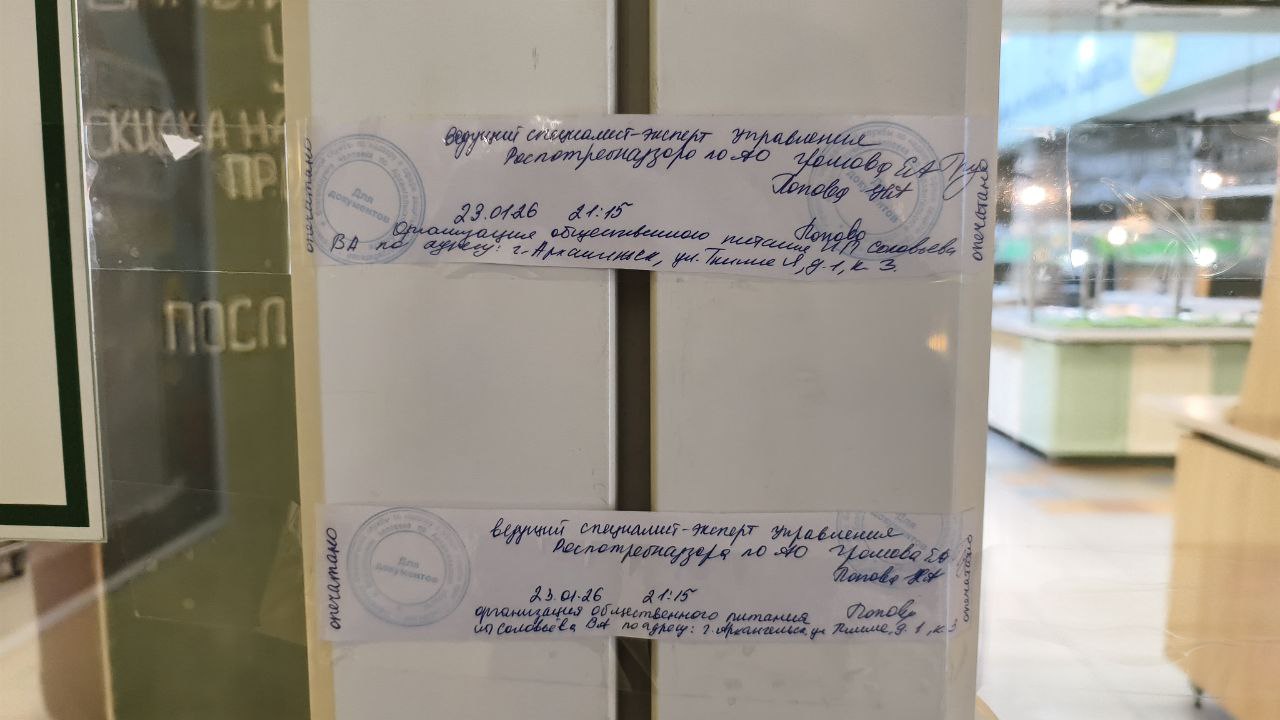 СКИДКА НА
ПР
ПОСЛ
опечатано
Для
документов
ведущий специалист-эксперт Управления
Роспотребнадзора по АО Громова ЕА
Попова НА
23.01.26 21:15
Попова
Организация общественного питания ИП Соловьева
ВА по адресу: г. Архангельск, ул. Тимме Я, д. 1, к. 3.
опечатано
опечатано
Для
документов
ведущий специалист-эксперт Управления
Роспотребнадзора по АО Громова ЕА
Попова НА
23.01.26 21:15
Попова
организация общественного питания
ИП Соловьева ВА по адресу: г. Архангельск, ул Тимме, д. 1, к. 3
опечатано